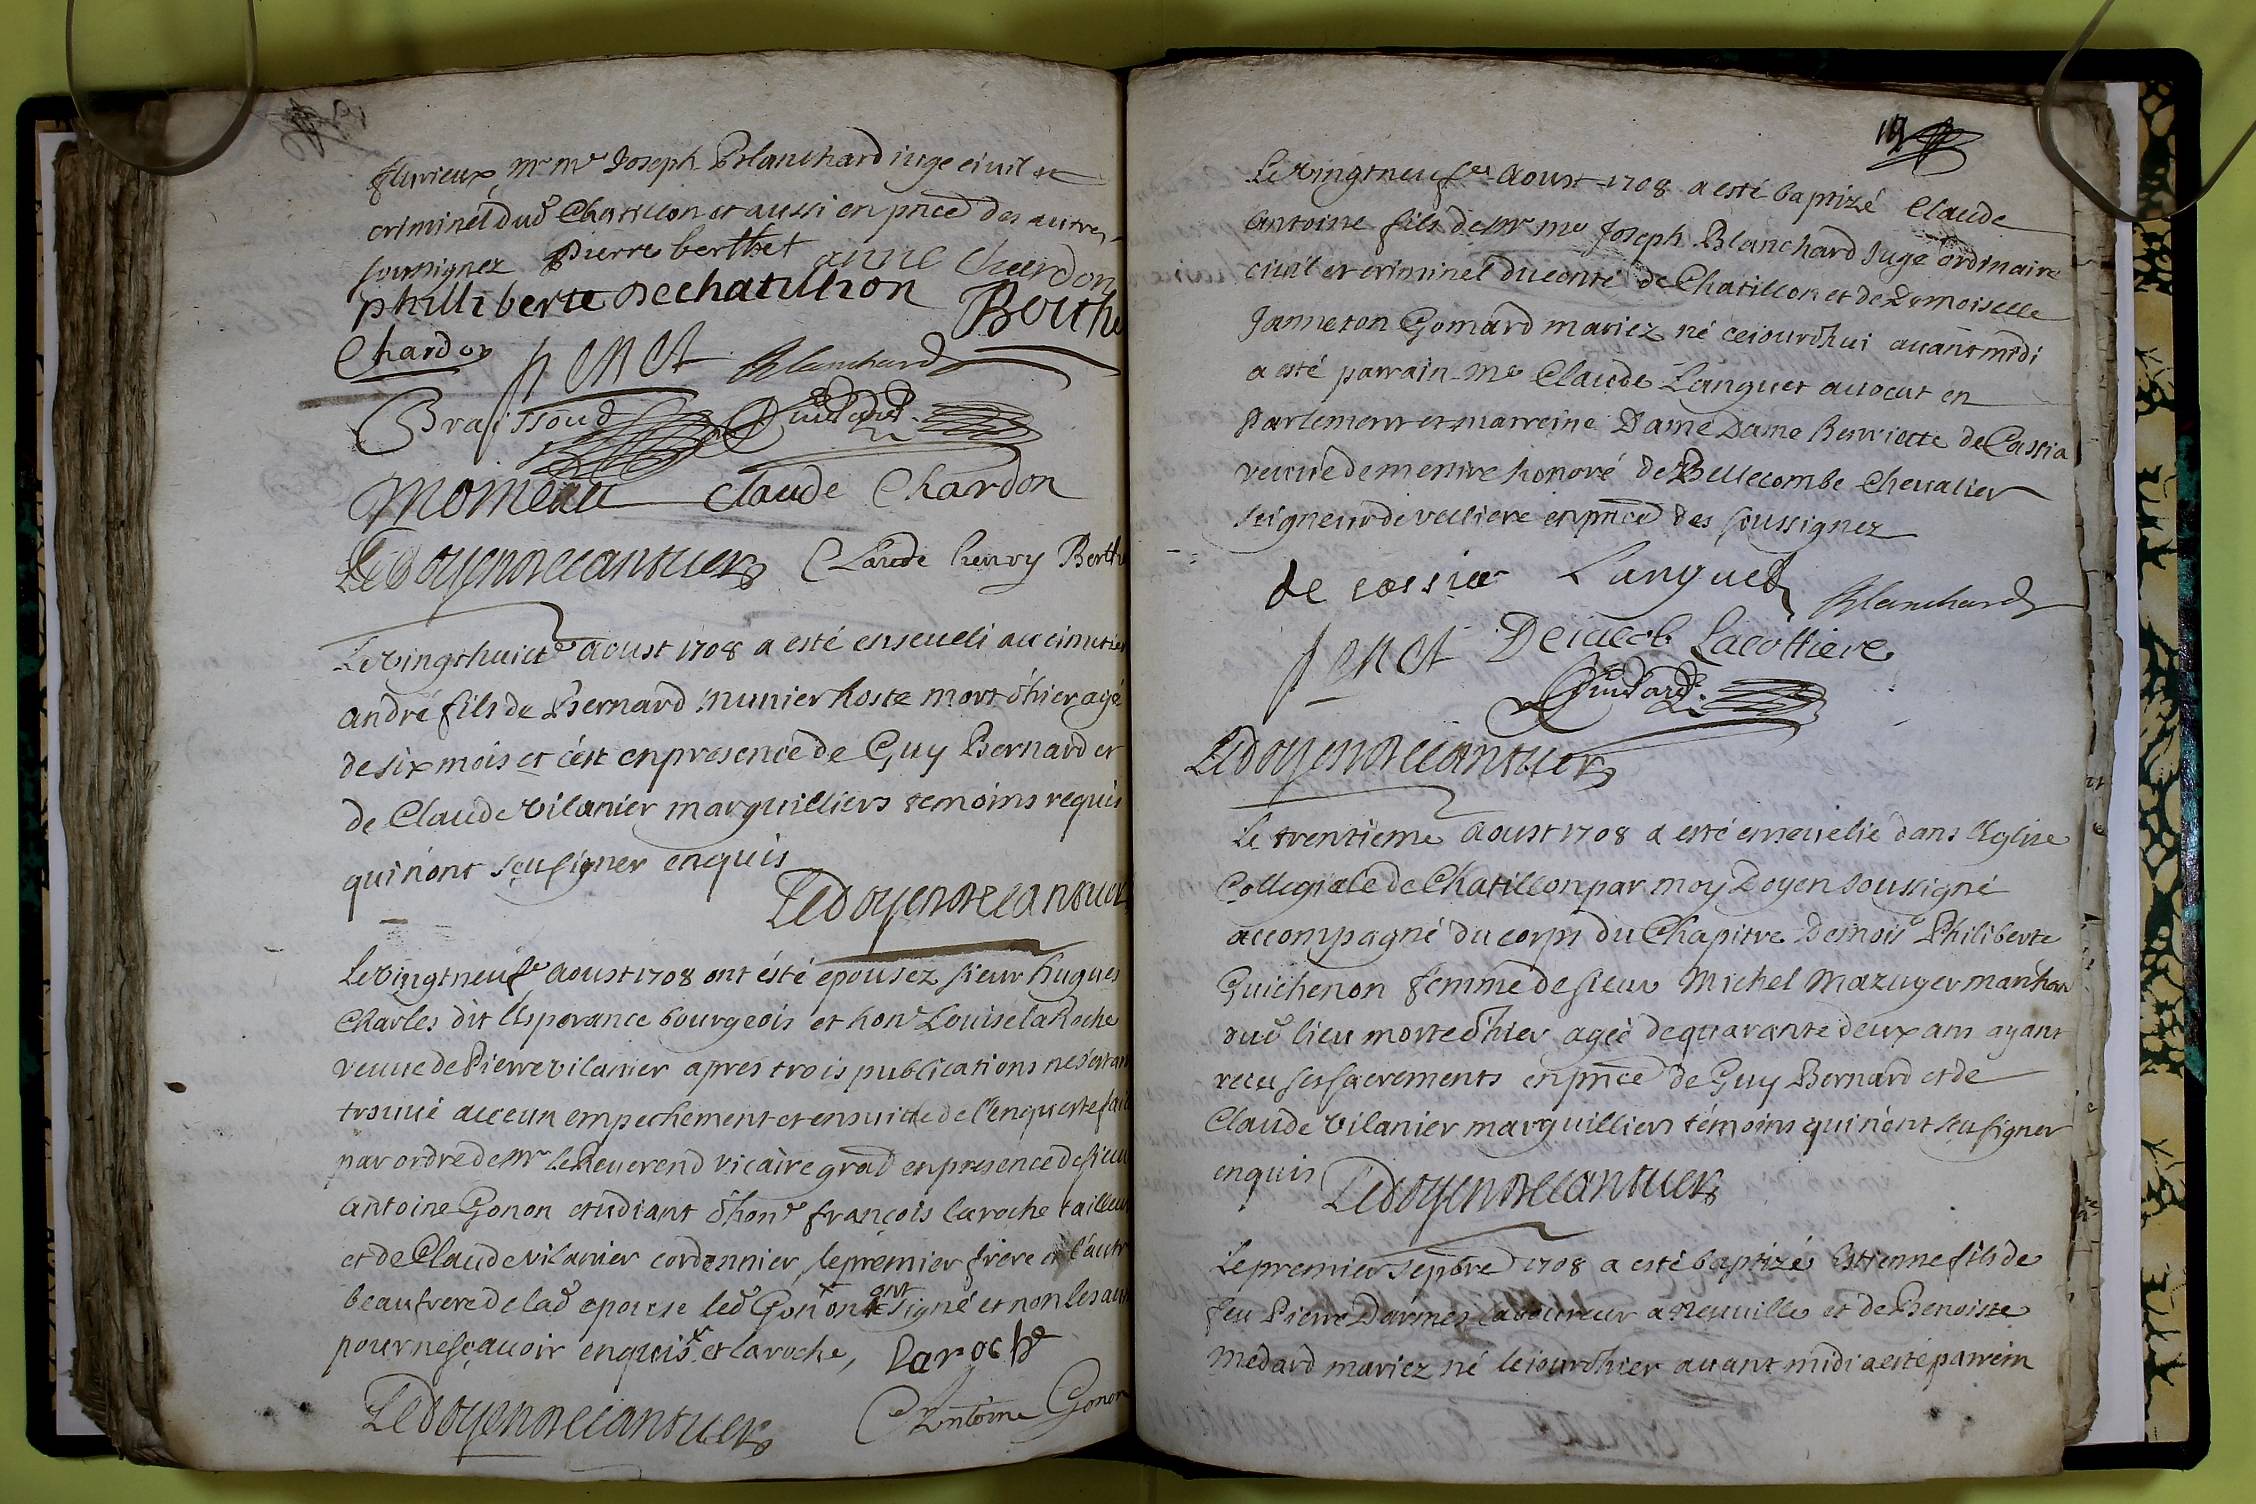 flurieux, Mr Me Joseph Blanchard iuge ciuil et
criminel dud Chatillon et aussi en pnce des autres
soussignez Pierre berthet anne Chardon
philliberte Dechatillion Berthe
Chardon penet Blanchard
Braissoud Guichard
Momeau Claude Chardon
Le Doyen Claude henry Berth
Le Vingthuicte Aoust 1708 a esté enseueli au cimetier
André fils de Bernard Munier hoste mort d'hier agé
de six mois et c'est en presence de Guy Bernard et
de Claude Vilanier marguilliers temoins requis
qui n'ont sçu signer enquis
Le Doyen
Le Vingtneufe Aoust 1708 ont ésté epousez sieur hugues
Charles dit l'Esperance bourgeois et hone Louise la Roche
veuue de Pierre vilanier apres trois publications ne s'estan
trouué auccun empechement et ensuitte de l'enqueste fait
par ordre de Mr le Reuerend vicaire grad en presence de sieu
Antoine Gonon etudiant d'hone françois laroche tailleur
et de Claude vilanier cordonnier, le premier frere et l'autr
beaufrere de lad epouse led Gonon ont signé et non les au
pour ne sçauoir enquis et laroche, Laroche
Le Doyen Antoine Gonon
Le Vingtneufe Aoust 1708 a esté baptizé Claude
Antoine fils de Mr Me Joseph Blanchard Juge ordinaire
ciuil et criminel du conté de Chatillon et de Demoiselle
Janneton Gomard mariez né ceiourd'hui auant midi
a esté parrain Me Claude Languet auocat en
Parlement et marreine Dame Dame Henriette de Cassia
veuue de messire honoré de Bellecombe Cheualier
seigneur de velliere en pnce des soussignez
de cassia Languet Blanchard
penet Deiacob Lacottiere
Guichard
Le Doyen
Le trentieme Aoust 1708 a esté enseuelie dans l'Eglise
Collegiale de Chatillon par moy Doyen soussigné
accompagné du corps du Chapitre demois Philiberte
Guichenon femme de sieur Michel Mazuyer marchan
dud lieu morte d'hier agée de quarante deux ans ayant
recu ses sacrements en pnce de Guy Bernard et de
Claude Vilanier marguilliers témoins qui n'ont sçu signer
enquis Le Doyen
Le premier sepbre 1708 a esté baptizé Estienne fils de
feu Pierre Darmes laboureur a Neuuille et de Benoiste
Medard mariez né le iour d'hier auant midi a esté parrein